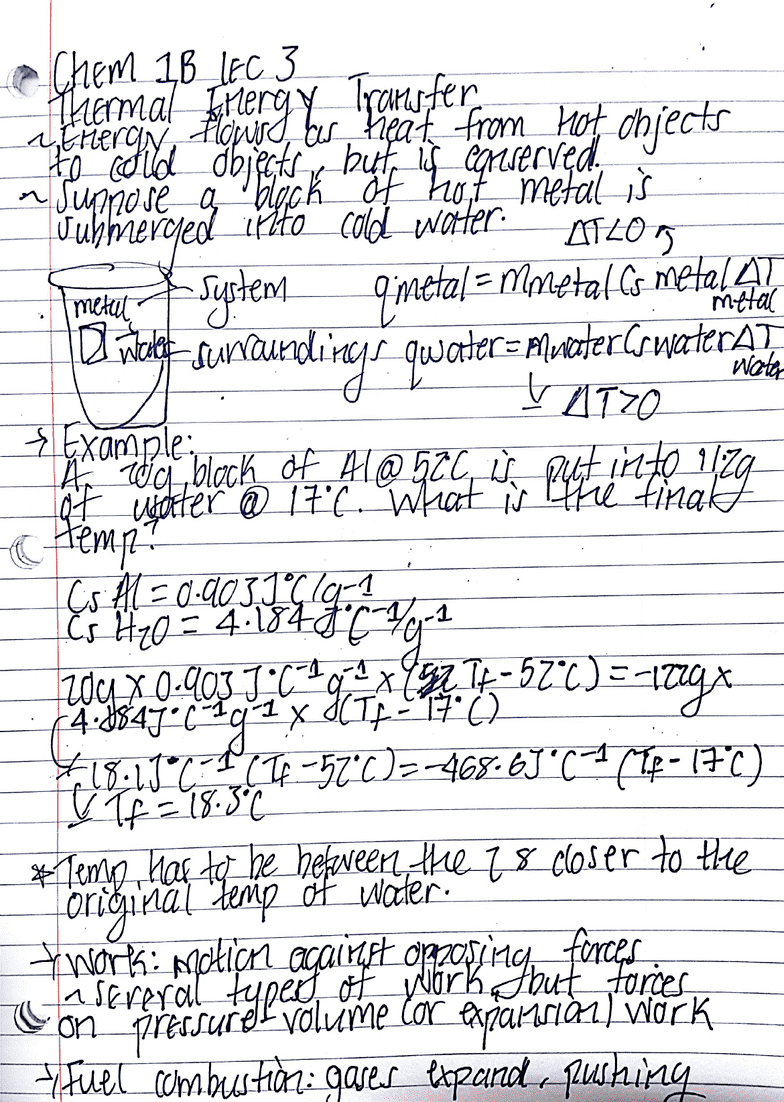 Chem 1B LEC 3
Thermal Energy Transfer
~ Energy flows as heat from hot objects
to cold objects, but is conserved.
~ Suppose a block of hot metal is
submerged into cold water.
ΔT<0
metal
system
qmetal = Mmetal Cs metal ΔT
metal
water
surroundings
qwater = Mwater Cs water ΔT
water
ΔT>0
→ Example:
A 20g block of Al @ 52C is put into 112g
of water @ 17°C. What is the final
temp?
Cs Al = 0.903 J°C/g-1
Cs H2O = 4.184 J°C-1/g-1
20g x 0.903 J·°C-1 g-1 x (Tf - 52°C) =
4.184J·°C-1g-1 x (Tf - 17°C)
18.1J°C-1 (Tf - 52°C) = -468.6J°C-1 (Tf - 17°C)
Tf = 18.3°C
* Temp has to be between the 2 & closer to the
original temp of water.
→ Work: motion against opposing forces
~ several types of work, but forces
on pressure-volume (or expansion) work
→ Fuel combustion: gases expand, pushing